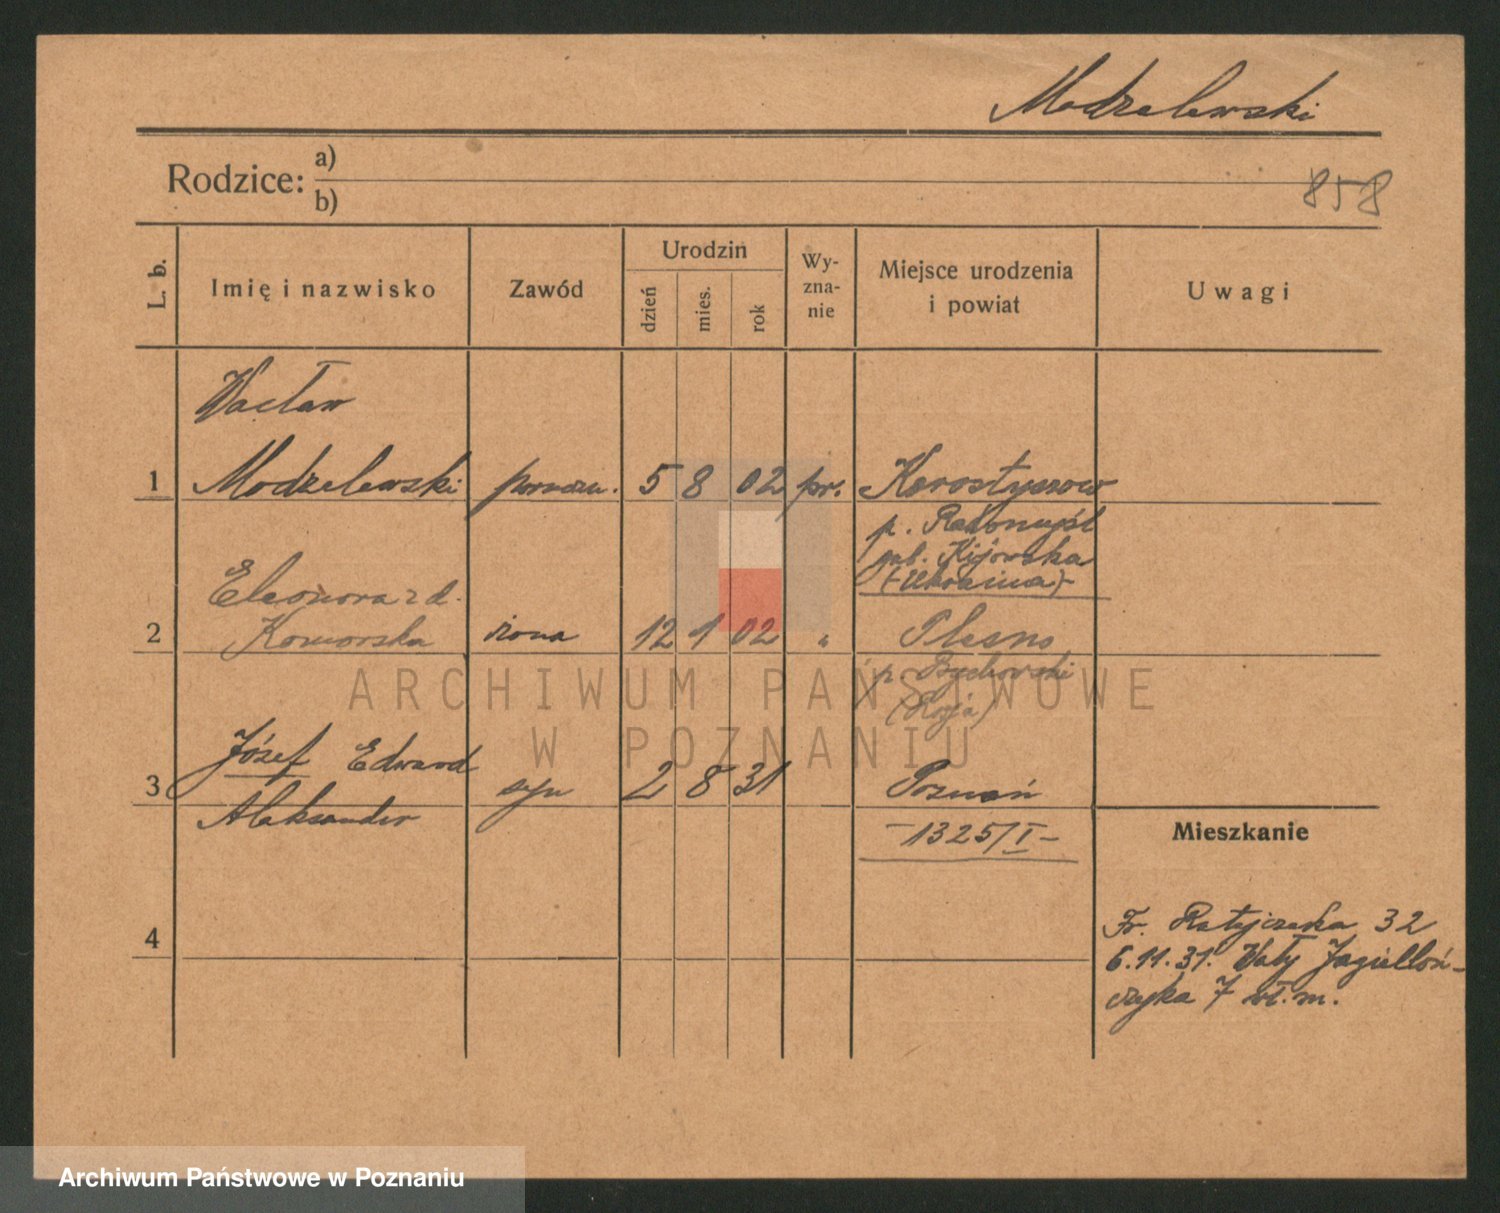 Modrzelewski
Rodzice: a)
b)
858
L. b.
Imię i nazwisko
Zawód
Urodzin
dzień
mies.
rok
Wy-
zna-
nie
Miejsce urodzenia
i powiat
Uwagi
Wacław
1 Modrzelewski 5 8 02 pr. Korostyszow
p. Radomyśl
gub. Kijowska
(Ukraina)
Eleonora z d.
2 Komorska żona 12 1 02 " Plesno
p. Bychowski
(Rosja)
Józef Edward
3 syn 2 8 31 Poznań
Aleksander
-1325/I-
Mieszkanie
4
Fr. Ratajczaka 32
6.11.31. Wały Jagielloń-
czyka 7 wł. m.
ARCHIWUM PAŃSTWOWE
W POZNANIU
Archiwum Państwowe w Poznaniu